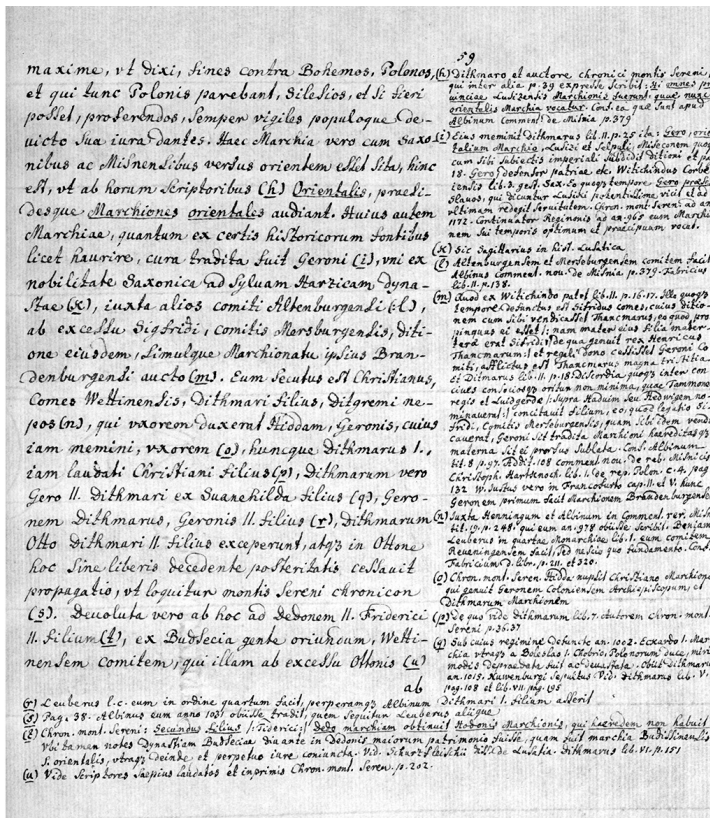 59
maxime, vt dixi, fines contra Bohemos, Polonos,
et qui tunc Polonis parebant, Silesios, et si fieri
posset, proferendos, semper vigiles populoque de-
uicto sua iura dantes. Haec Marchia vero cum Saxo-
nibus ac Misnensibus versus orientem esset sita, hinc
est, vt ab horum scriptoribus (h) Orientalis, praesi-
desque Marchiones orientales audiant. Huius autem
Marchiae, quantum ex certis historicorum fontibus
licet haurire, cura tradita fuit Geroni (i), vni ex
nobilitate Saxonica ad Syluam Harzicam dyna-
stae (x), iuxta alios comiti Altenburgensi (l),
ab excessu Sigfridi, Comitis Mersburgensis, diti-
one eiusdem, simulque Marchionatu ipsius Bran-
denburgensi aucto (m). Eum secutus est Christianus,
Comes Wettinensis, Dithmari filius, Ditgremi ne-
pos (n), qui vxorem duxerat Hiddam, Geronis, cuius
iam memini, vxorem (o), huncque Dithmarus I.,
iam laudati Christiani filius (p), Dithmarum vero
Gero II. Dithmari ex Suanehilda filius (q), Gero-
nem Dithmarus, Geronis II. filius (r), Dithmarum
Otto Dithmari II. filius exceperunt, atqz in Ottone
hoc sine liberis decedente posteritatis cessauit
propagatio, vt loquitur montis Sereni chronicon
(s). Deuoluta vero ab hoc ad Dedonem II. Friderici
II. filium (t), ex Budsecia gente oriundum, Wetti-
nensem comitem, qui illam ab excessu Ottonis (u)
ab
(h) Dithmaro et auctore chronici montis Sereni,
qui inter alia p. 39 expresse scribit: omnes
Lusizensis Marchionis fuerunt, quae nunc
orientalis Marchia vocatur. Conf. ea quae sunt apud
Albinum Comment. de Misnia p. 379
(i) Eius meminit Dithmarus lib. II. p. 25 ita: Gero,
talium Marchio, Lusizi et Selpuli, Miseconem quoq
cum sibi subiectis imperiali subdidit ditioni et p.
18. Gero defensor patriae etc. Witichindus Corbe
iensis lib. 3. gest. Sax. Eo quoqz tempore Gero praeses
Slauos, qui dicuntur Lusiki potentissime vicit et ad
vltimam redegit seruitutem. Chron. mont. Seren. ad an
1172. Continuator Reginonis ad an. 965 eum Marchi
nem sui temporis optimum et praecipuum vocat.
(x) Sic Sagittarius in hist. Lusatica
(l) Altenburgensem et Mersburgensem comitem facit
Albinus comment. nou. de Misnia p. 379. Fabricius
lib. II. p. 138.
(m) Quod ex Witichindo patet lib. II. p. 16. 17. Illo quoqz
tempore defunctus est Sifridus comes, cuius ditio-
nem cum sibi vendicasset Thancmarus, eo quod pro
pinquus ei esset /: nam mater eius filia mater-
terae erat Sifridi, de qua genuit rex Henricus
Thancmarum :/ et regali dono cessisset Geroni Co
miti, afflictus est Thancmarus magna tristitia.
Et Ditmarus lib. II. p. 18 Discordia quoqz inter con-
ciues consociosqz oritur non minima, quae Tammonem
regis et Luidgerdae /: supra Haduim seu Hedwigem no-
minauerat :/ concitauit filium, eo, quod legatio Si-
fridi, Comitis Mersburgensis, quam sibi idem vendi
cauerat, Geroni sit tradita Marchioni haereditasqz
materna sit ei prorsus sublata. Conf. Albinum
tit. 8 p. 97. Addit. 108 comment nou. de reb. Misnicis
Christoph. Hartknoch. lib. I. de rep. Polon. c. 4. pag
132 W. Justus vero in Francofurto cap. II. et W. hunc
Geronem primum facit Marchionem Brandenburgensem
(n) Juxta Henningum et Albinum in Comment. rer. Misn
tit. 19. p. 248. qui eum an. 978 obiisse scribit. Benjam
Leuberus in quartae Monarchiae lib. I. eum comitem
facit, sed nescio quo fundamento. Conf.
Fabricium D. libr. p. 211. et 520.
(o) Chron. mont. Seren. Hida nupsit Christiano Marchioni
qui genuit Geronem Coloniensem Archiepiscopum, et
Dithmarum Marchionem
(p) De quo vide Dithmarum lib. 7. Autorem chron. mont.
Sereni p. 36. 37
(q) Sub cuius regimine defuncto an. 1002. Eccardo I. Mar-
chia vtraqz a Boleslao I. Chobrio, Polonorum duce, miris
modis depraedata fuit ac deuastata. Obiit Dithmarus
an. 1015. Sepultus Vid. Dithmarus lib. V.
pag. 108 et lib. VII. pag. 95
(r) Leuberus l. c. eum in ordine quartum facit, perperamqz Albinum Dithmari I. filium asserit
(s) Pag. 38. Albinus eum anno 1031 obiisse tradit, quem sequitur Leuberus aliique
(t) Chron. mont. Sereni: Secundus filius /: Fiderici :/ Dedo marchiam obtinuit Hodonis Marchionis, qui haeredem non habuit
Vbi tamen notes Dynastiam Budseciae diu ante in Dedonis maiorum patrimonio fuisse, quam fuit marchia Budissinensis
s. orientalis, vtraqz deinde et perpetuo iure coniuncta. Vid. Schurtzfleischii diss. de Lusatia. Dithmarus lib. VI. p. 151
(u) Vide Scriptores saepius laudatos et inprimis Chron. mont. Seren. p. 202.